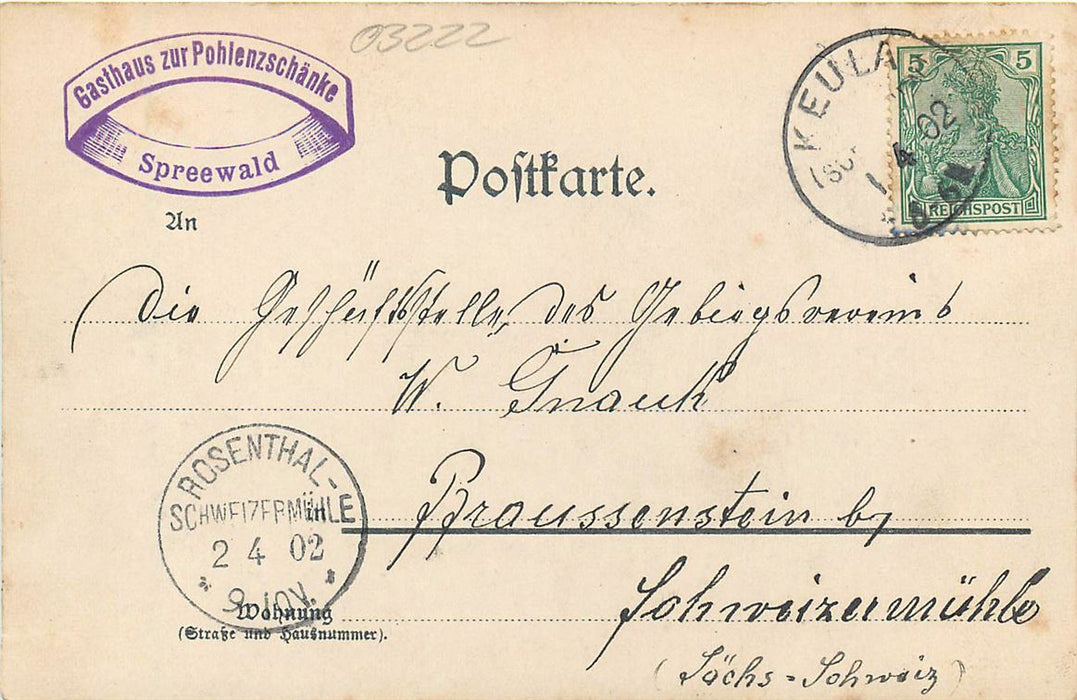 03222
Gasthaus zur Pohlenzschänke
Spreewald
Postkarte.
KEULA
1 4 02
5 5
REICHSPOST
An
Die Geschäftsstelle des Gebirgsvereins
W. Gnauck
ROSENTHAL-
SCHWEIZERMÜHLE
2 4 02
9-10V.
Braussenstein by
Schweizermühle
(Sächs-Schweiz)
Wohnung
(Straße und Hausnummer).